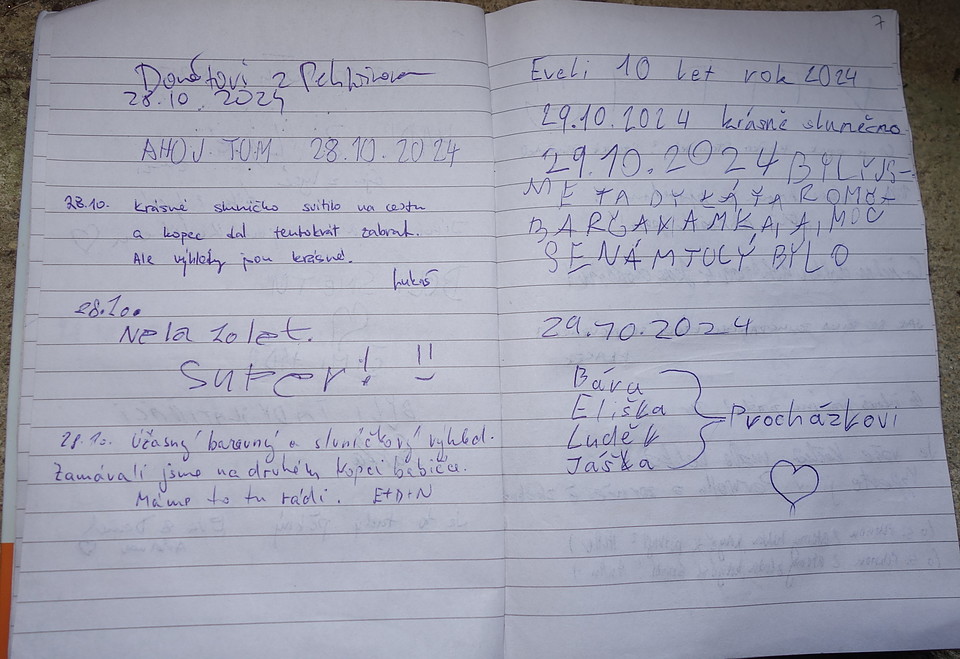 Donátovi z Pelhřimova
28.10.2024
AHOJ TOM 28.10.2024
28.10. Krásné sluníčko svítilo na cestu
a kopec dal tentokrát zabrat.
Ale výhledy jsou krásné.
Lukáš
28.10.
Nela 10 let.
Super! !!
28.10. Úžasný barevný a sluníčkový výhled.
Zamávali jsme na druhém kopci babičce.
Máme to tu rádi. E+D+N
7
Eveli 10 let rok 2024
29.10.2024 krásně slunečno
29.10.2024 BYLY JS-
ME TADY KÁŤA ROM
BARČA
SE NÁM TU LÝBYLO
29.10.2024
Bára
Eliška
Luděk
Jáška
Procházkovi